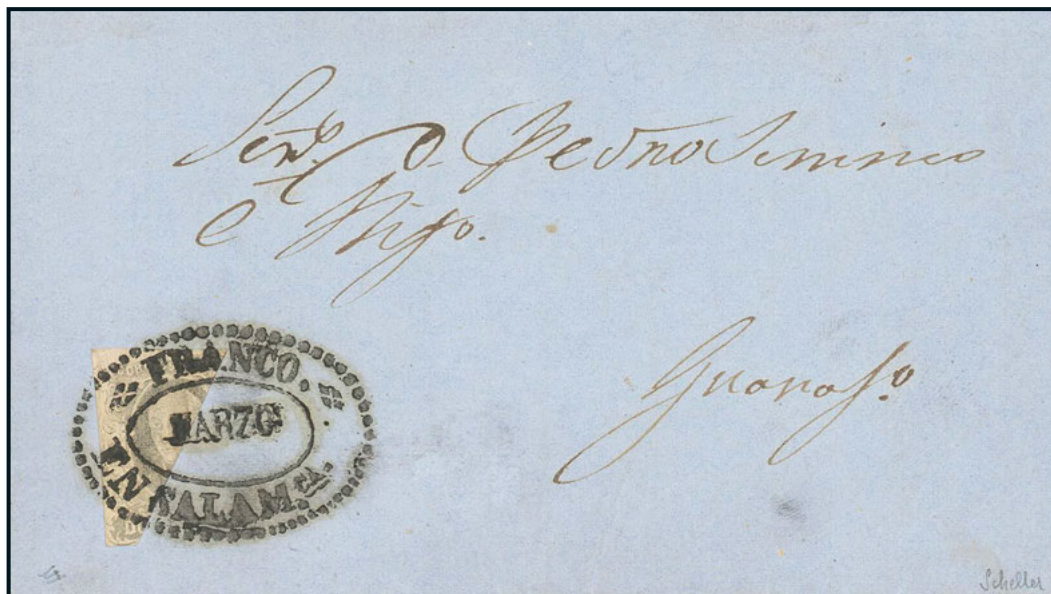 Señr. D. Pedro Jimines
e Hijo.
Guanajo.
FRANCO.
MARZO
EN SALAM.CA.
Scheller